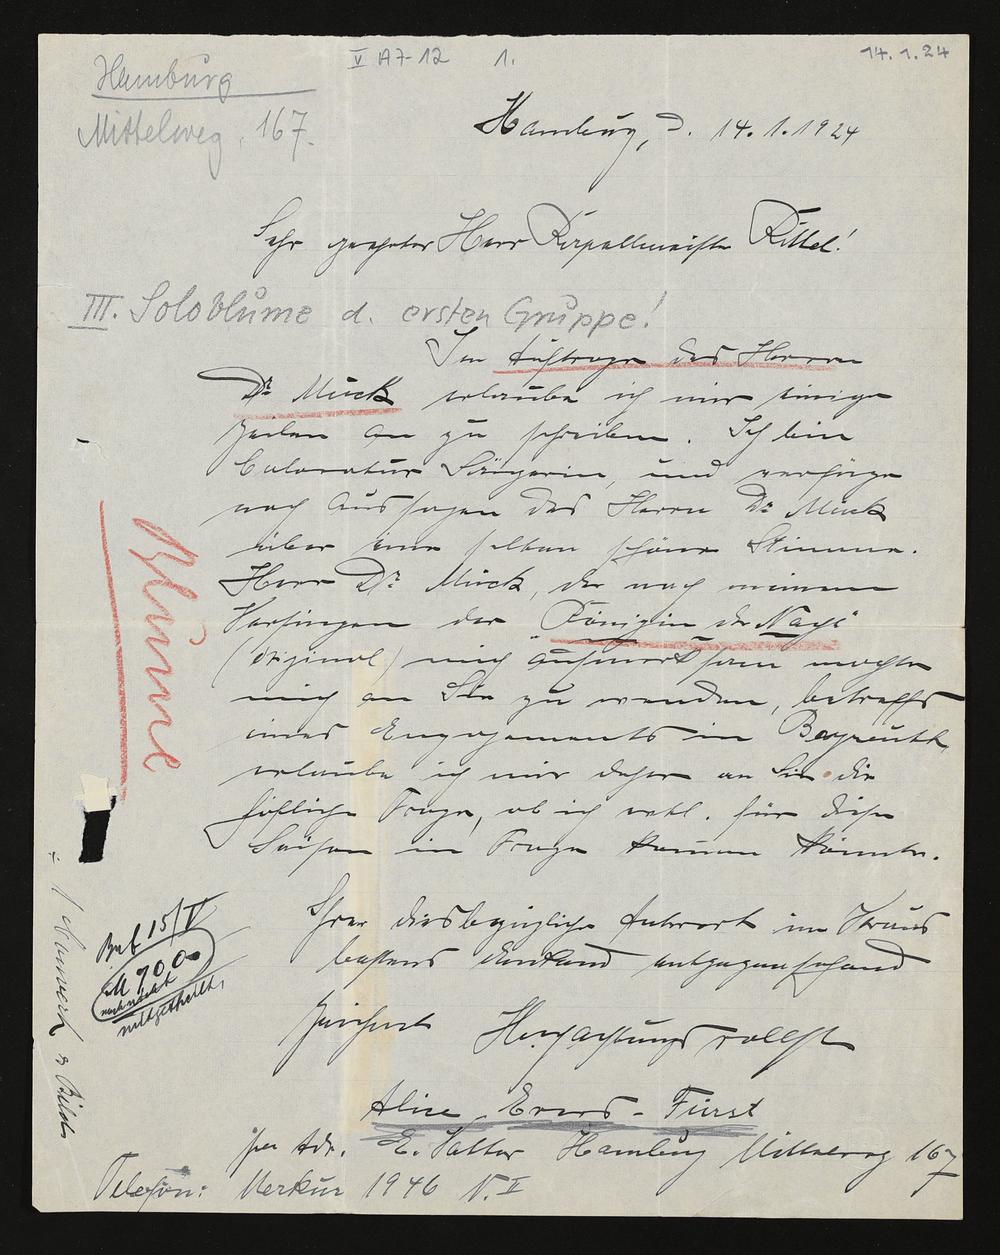 V A7-12 1.
14.1.24
Hamburg
Mittelweg 167.
Hamburg, d. 14.1.1924
Sehr geehrter Herr Kapellmeister Kittel!
III. Soloblume d. ersten Gruppe!
Im Auftrage des Herrn
Dr. Muck erlaube ich mir einige
Zeilen an zu schreiben. Ich bin
Coloratur Sängerin, und verfüge
nach Aussagen des Herrn Dr. Muck
über eine selten schöne Stimme.
Herr Dr. Muck, der nach meinem
Vorsingen der "Königin der Nacht"
(Original) mich aufmerksam machte
mich an Sie zu wenden, betreffs
eines Engagements in Bayreuth,
erlaube ich mir daher an Sie die
höfliche Frage, ob ich evtl. für diese
Saison in Frage kommen könnte.
Blume
Ihrer diesbezüglichen Antwort im Voraus
bestens dankend entgegensehend
zeichnet Hochachtungsvollst
Alice Evers-Fürst
per Adr. E. Hamburg Mittelweg 167
Telefon: Merkur 1946 N. I
15/V
M 900
noch nicht
mitgetheilt.
& Bild